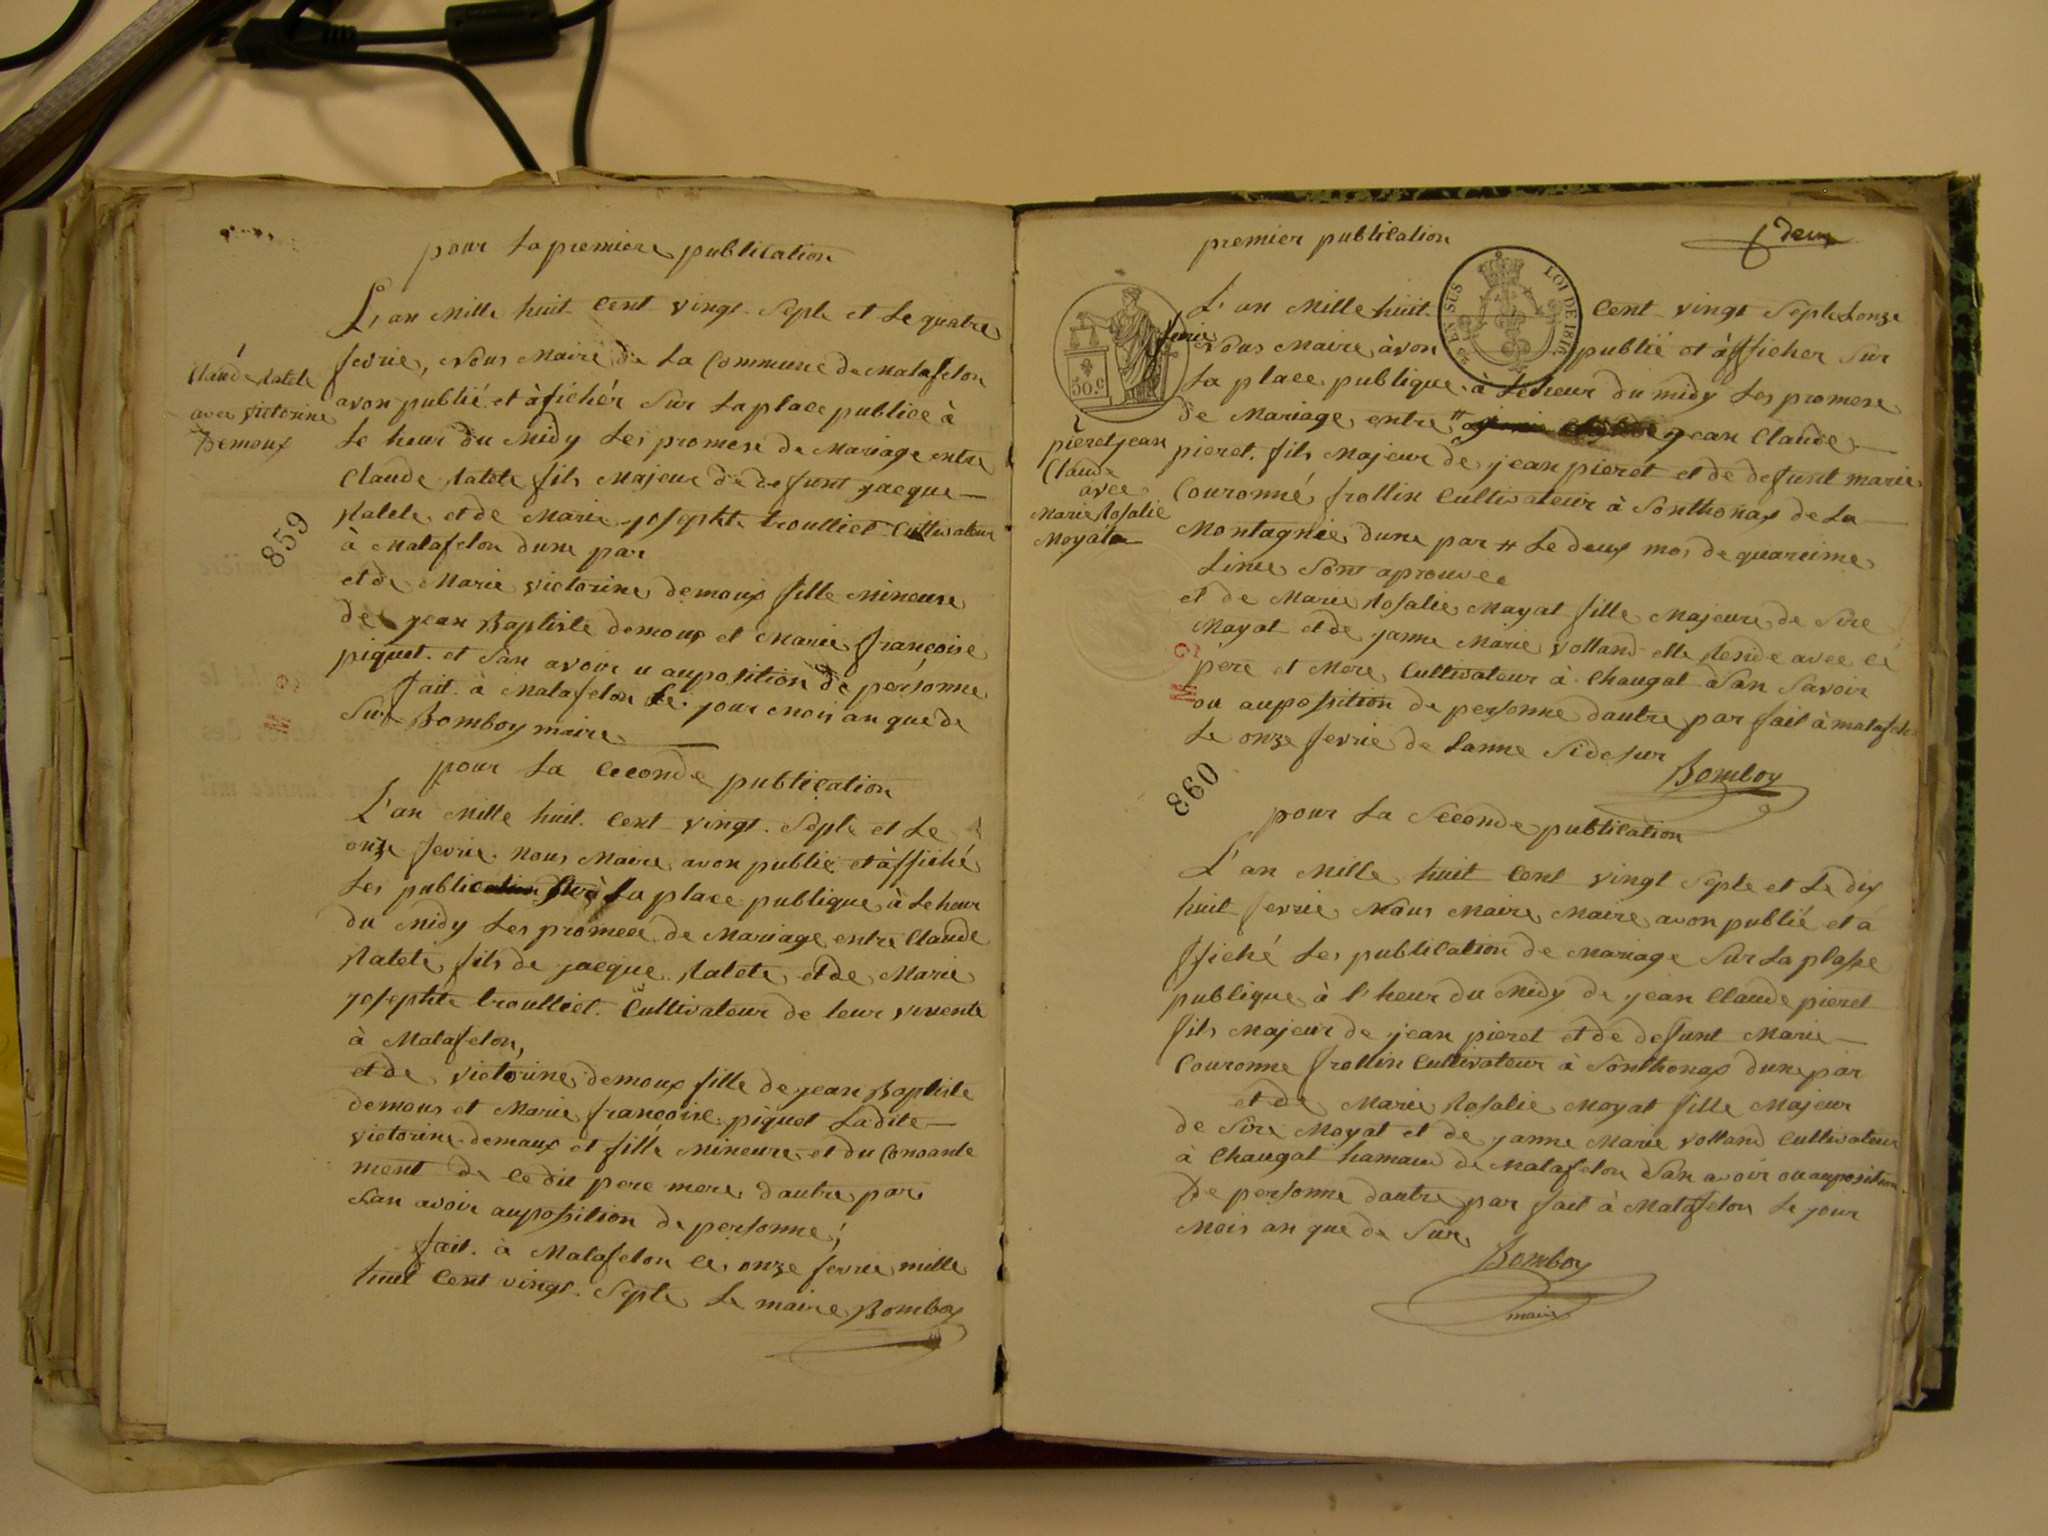 pour La premiere publication
L'an Mille huit Cent vingt Septe et Le quatre
fevrie, Nous Maire de La Commune de Matafelon
avon publié et àfichér Sur La place publice à
Le heur du Midy Les promese de Mariage entre
Claude Ratete fils Majeur de defunt jacque
Ratete et de Marie josephte troulliet Cultivateur
à Matafelon dune par
et de Marie victorine demoux fille Mineure
de jean Baptiste demoux et Marie françoise
piquet et San avoir u auposition de personne
fait à Matafelon Le jour mois an que de
Sur Bomboy maire
Claude Ratete
avec victorine
Demoux
859
C
M
pour La Ceconde publication
L'an Mille huit Cent vingt Septe et Le
onze fevrie Nous Maire avon publié et àffiché
Les publication à La place publique à Le heur
du Midy Les promece de Mariage entre Claude
Ratete fils de jacque Ratete et de Marie
josephte troulliet Cultivateur de leur vivente
à Matafelon,
et de victorine demoux fille de jean Baptiste
demous et Marie françoise piquet Ladite
victorine demoux et fille Mineure et du Consante
ment de Ce dit pere mere dautre par
San avoir auposition de personne,
fait à Matafelon Le onze fevrie mille
huit Cent vingt Septe Le maire Bomboy
premier publication
deux
L'an Mille huit Cent vingt Septe Lonze
fevrie Nous Maire àvon publié et àfficher Sur
La place publique à Le heur du midy Les promese
de Mariage entre jean Claude
pieret fils Majeur de jean pieret et de defunt marie
Couronné frollin Cultivateur à Sonthonax de La
Montagnie dune par # Le deux mos de quareime
Line Sont aprouvee
et de Marie Rosalie Moyat fille Majeure de Sire
Moyat et de janne Marie volland elle Reside avec Cé
pere et Mere Cultivateur à Chaugat San Savoir
ou auposition de personne dautre par fait à matafelon
Le onze fevrie de Lanne Sidesur
Bomboy
50.c
EN SUS
LOI DE 1816
pieret jean
Claude
avec
Marie Rosalie
Moyat
C
M
860
pour La Seconde publication
L'an Mille huit Cent vingt Septe et Le dix
huit fevrie Nous Maire Maire avon publié et a
ffiché Les publication de Mariage Sur La plase
publique à l'heur du Midy de jean Claude pieret
fils Majeur de jean pieret et de defunt Marie
Couronne frollin Cultivateur à Sonthonax dune par
et de Marie Rosalie Moyat fille Majeur
de Sire Moyat et de janne Marie volland Cultivateur
à Chaugat hamaux de Matafelon San avoir ou auposition
de personne dautre par fait à Matafelon Le jour
Mois an que de Sur
Bomboy
maire